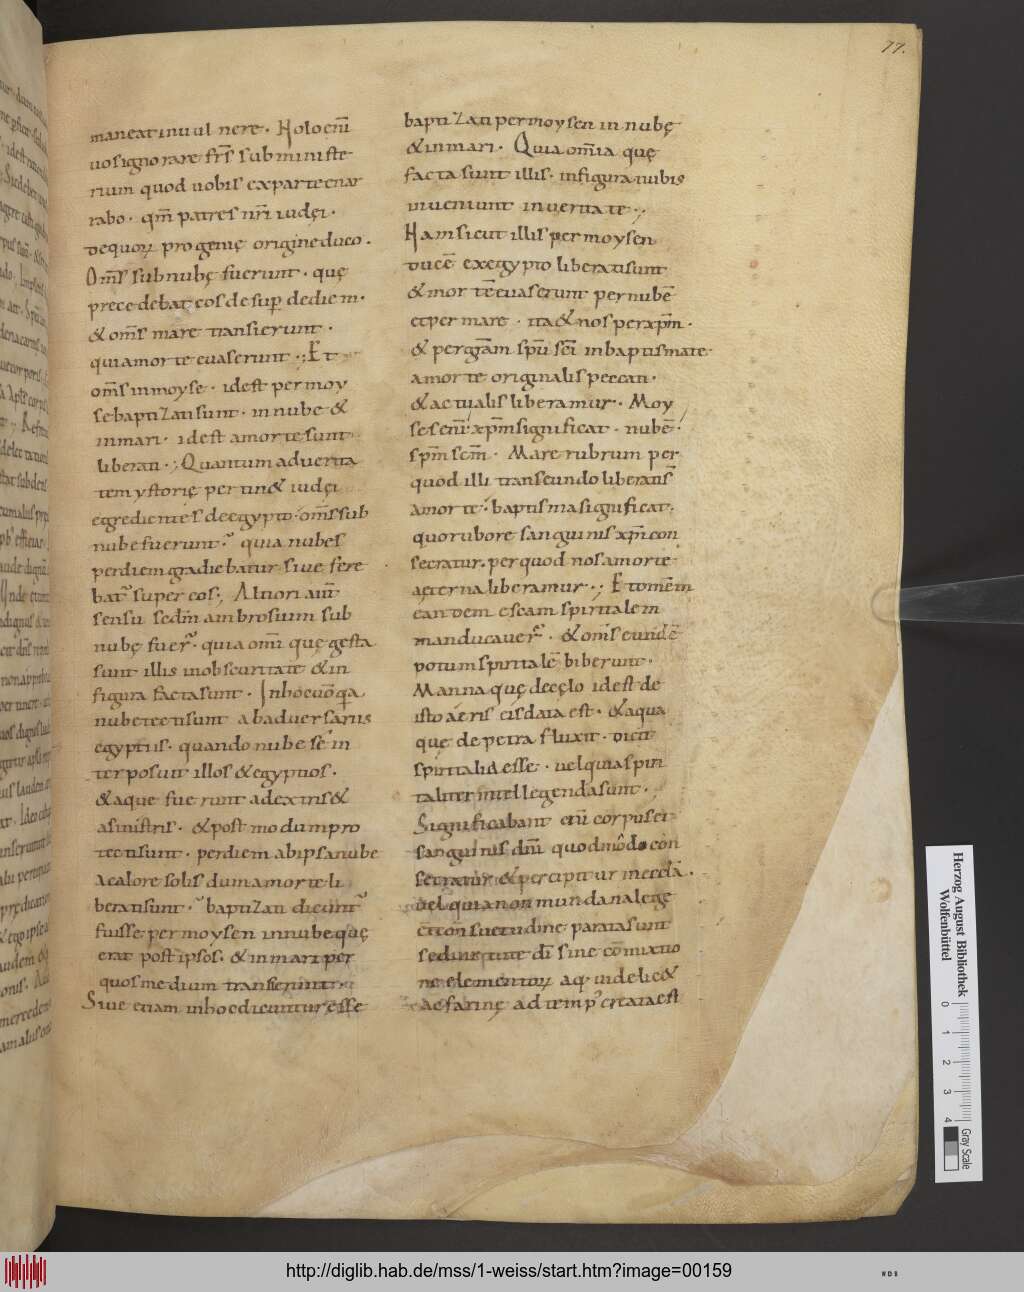 77.
maneat inuulnere. Nolo eni̅
uos ignorare fr̅s subministe
rium quod uobis exparte enar
rabo. qm̅ patres nr̅i iudęi.
dequoꝝ progenię origine duco.
Om̅s sub nubę fuerunt. quę
precedebat eos desup̲ dediem.
& om̅s mare transierunt.
quia morte euaserunt.; Et
om̅s inmoyse. idest permoy
se baptizati sunt. in nube &
inmari. idest amorte sunt
liberati.; Quantum aduerita
tem ystorię pertin& iudęi
egredientes deegypto. om̅s sub
nube fuerunt. quia nubes
perdiem gradiebatur siue fere
batr̉ super eos; Altiori aut̅
sensu sedm̅ ambrosium sub
nubę fuer̉. quia om̅i quę gesta
sunt illis inobscuritate & in
figura facta sunt.
nube tecti sunt abaduersariis
egyptiis. quando nube se in
terposuit illos & egyptios.
& aque fuerunt adextris &
asinistris. & post modum pro
tecti sunt. perdiem abipsa nube
acalore solis dum amorte li
berati sunt. baptizati dicunt̉
fuisse permoysen innube quę
erat post ipsos. & inmari per
quos medium transierunt.
Siue etiam inhoc dicuntur esse
baptizati per moysen in nubę
& in mari. Quia om̅ia quę
facta sunt illis. infigura nubis
inueniunt inueritate.;
Nam sicut illis per moysen
ducē exegypto liberati sunt
& morte̅ euaserunt per nubē
et per mare. ita & nos per xp̅m.
& per gr̅am sp̅u sc̅i inbaptismate
amorte originalis peccati.
& actualis liberamur. Moy
ses eni̅ xp̅m significat. nubē.
sp̅m sc̅m. Mare rubrum per
quod illi transeundo liberati s̅
amorte. baptisma significat.
quo rubore sanguinis xp̅i con
secratur. per quod nos amorte
aęterna liberamur.; Et om̅em
eandem escam spiritalem
manducauer̉. & om̅s eundē
potum spiritalē biberunt.
Manna quę decęlo idest de
isto aeris eis data est. & aqua
quę depetra fluxit. dicit
spiritalia esse. uel quia spiri
taliter intellegenda sunt.;
Significabant eni̅ corpus et
sanguinis dm̅i quod modo con
secratur & percipitur inęccl̅a.
uel quia non mundana lege
et consuetudine parata sunt
sed inuirtute di̅ sine co̅mixtio
ne elementoꝝ aq̨ uidelic&
ac farinę ad temp' creata est
Herzog August Bibliothek
Wolfenbüttel
0 1 2 3 4
Gray Scale
http://diglib.hab.de/mss/1-weiss/start.htm?image=00159